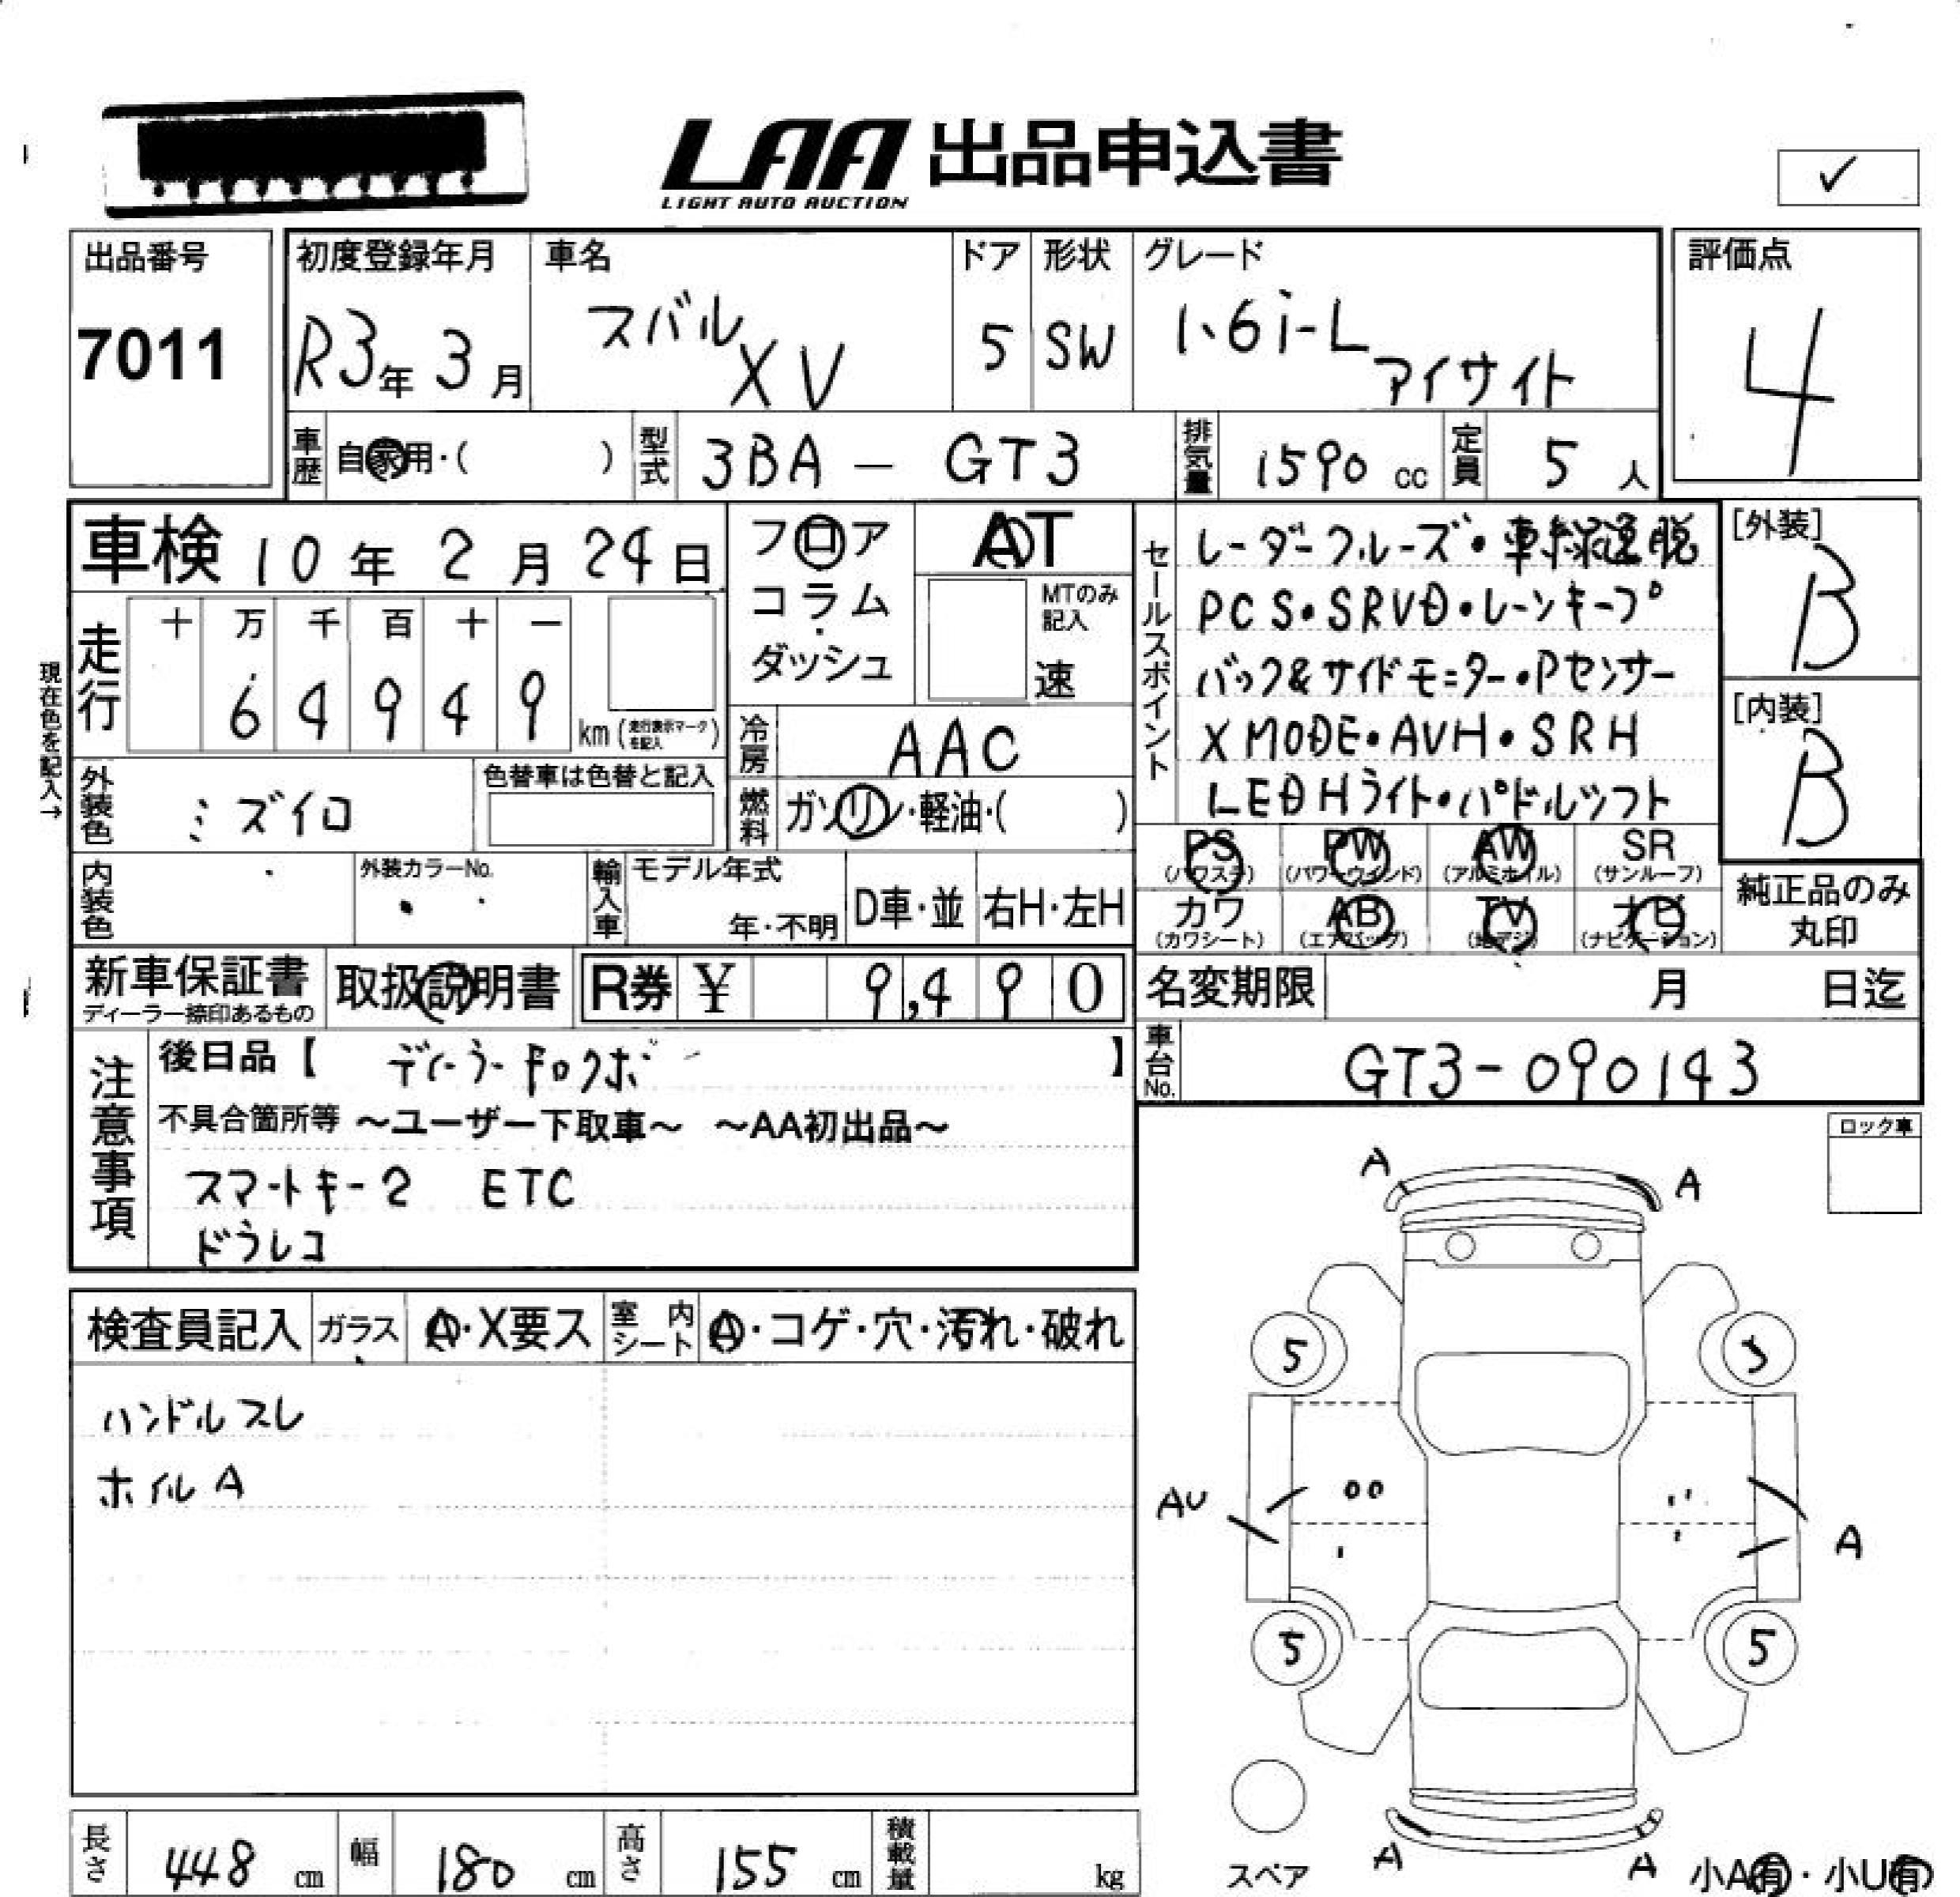 LAA 出品申込書
LIGHT AUTO AUCTION
✓
出品番号
7011
初度登録年月
R3年 3月
車名
スバル
XV
ドア
5
形状
SW
グレード
1.6i-L
アイサイト
評価点
4
車歴 自家用・( )
型式 3BA - GT3
排気量 1590 cc
定員 5 人
車検 10年 2月 24日
フロア
コラム
・
ダッシュ
AT
MTのみ
記入
速
現在色を記入→
走行
十 万 千 百 十 一
6 4 9 4 9
km (走行表示マークを記入)
冷房 AAC
燃料 ガソリン・軽油・( )
外装色 ミズイロ
色替車は色替と記入
内装色
外装カラーNo.
輸入車
モデル年式
年・不明
D車・並
右H・左H
セールスポイント
レーダークルーズ・車線逸脱
PCS・SRVD・レーンキープ
バック&サイドモニター・Pセンサー
XMODE・AVH・SRH
LEDHライト・パドルシフト
[外装]
B
[内装]
B
PS (パワステ)
PW (パワーウィンド)
AW (アルミホイル)
SR (サンルーフ)
カワ (カワシート)
AB (エアバッグ)
TV (地デジ)
ナビ (ナビゲーション)
純正品のみ
丸印
新車保証書
ディーラー捺印あるもの
取扱説明書
R券 ¥ 9,490
名変期限 月 日迄
車台No. GT3-090143
注意事項
後日品【 】
不具合箇所等 ～ユーザー下取車～ ～AA初出品～
スマートキー2 ETC
ドラレコ
ロック車
検査員記入
ガラス A・X要ス
室内シート A・コゲ・穴・汚れ・破れ
ハンドルスレ
ホイルA
A A
5 5
AU
A
5 5
A A
スペア
小A有・小U有
長さ 448 cm
幅 180 cm
高さ 155 cm
積載量 kg